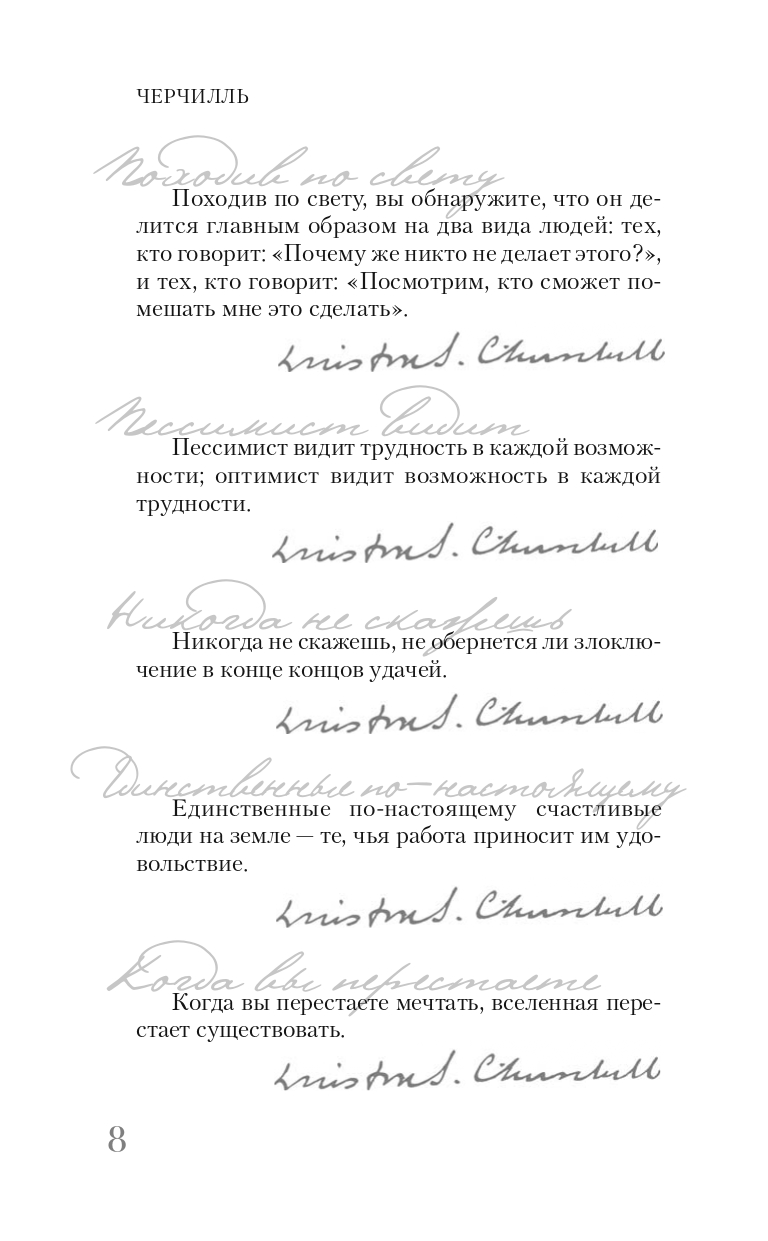 ЧЕРЧИЛЛЬ
Походив по свету
Походив по свету, вы обнаружите, что он де-
лится главным образом на два вида людей: тех,
кто говорит: «Почему же никто не делает этого?»,
и тех, кто говорит: «Посмотрим, кто сможет по-
мешать мне это сделать».
Winston S. Churchill
Пессимист видит
Пессимист видит трудность в каждой возмож-
ности; оптимист видит возможность в каждой
трудности.
Winston S. Churchill
Никогда не скажешь
Никогда не скажешь, не обернется ли злоклю-
чение в конце концов удачей.
Winston S. Churchill
Единственные по-настоящему
Единственные по-настоящему счастливые
люди на земле — те, чья работа приносит им удо-
вольствие.
Winston S. Churchill
Когда вы перестаете
Когда вы перестаете мечтать, вселенная пере-
стает существовать.
Winston S. Churchill
8